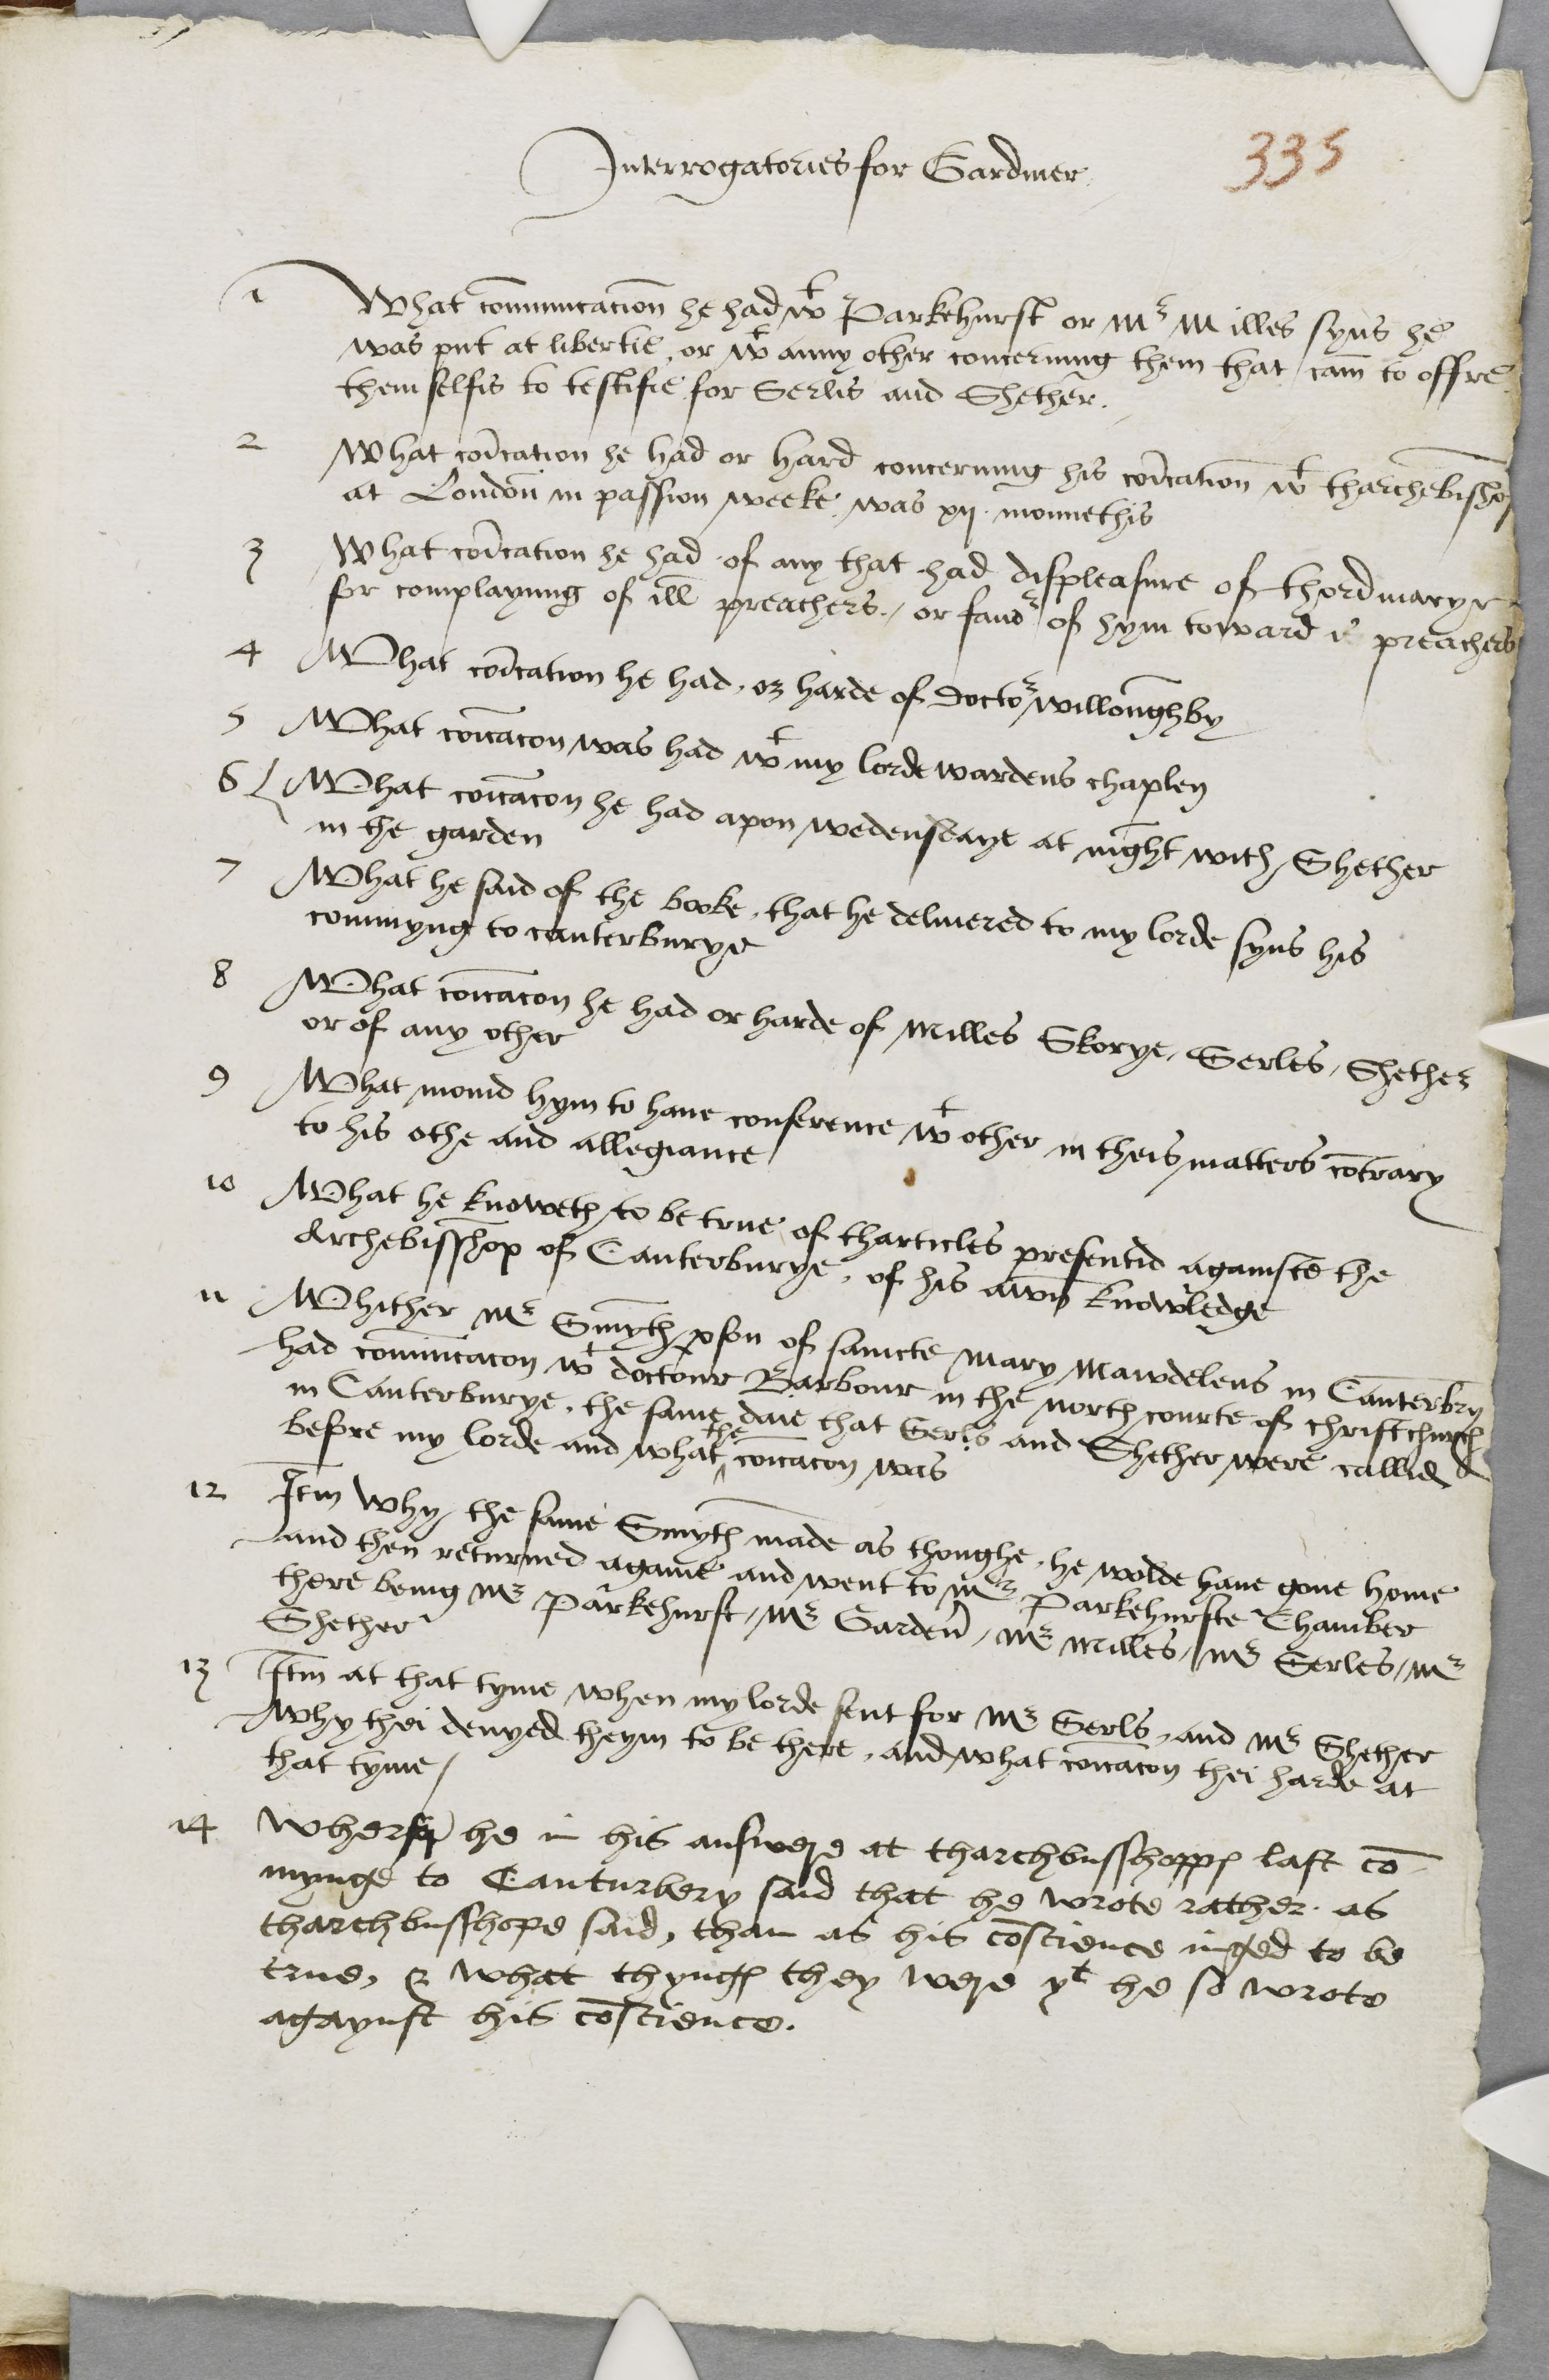 335
Interrogatories for Gardiner
1 What com̄unicacion he had wt Parkehurst or Mr Milles syns he
was put at libertie, or wt anny other concerning them that cam to offre
them selfis to testifie for Serlis and Shether.
2 What coīcation he had or hard concerning his coīcation wt tharchebisshop
at London in passion weeke was xij monnethis
3 What coīcation he had of any that had displeasure of thordinarye
for complayning of ill preachers, or favor of hym toward preachers
4 What coīcation he had, or harde of doctor willoughby
5 What coīcacon was had wt my lorde wardens chaplen
6 What coīcacon he had apon wedensdaye at night with Shether
in the garden
7 What he said of the booke, that he delivered to my lorde syns his
commyng to canterburye
8 What coīcacon he had or harde of Milles Skorye, Serles, Shether
or of any other
9 What movid hym to have conference wt other in theis matters contrary
to his othe and allegiance
10 What he knoweth to be true of tharticles presentid againste the
Archebisshop of Canterburye, of his awn knowledge
11 Whither Mr Smyth pson of saincte Mary Mawdelens in Canterbry
had com̄unicacon wt doctour Barbour in the north courte of christchurch
in Canterburye, the same daie that Serls and Shether were callid
before my lorde and what the coīcacon was
12 Itm why the same Smyth made as thoughe, he wolde have gone home
and then returned againe and went to Mr Parkehurste Chamber
there being Mr Parkehurst, Mr Garden, Mr Milles, Mr Serles, Mr
Shether
13 Itm at that tyme when my lorde sent for Mr Serls, and Mr Shether
Why thei denyed theym to be there, and what coīcacon thei harde at
that tyme
14 he in his answere at tharchbusshopps last co-
mynge to Canturbery said that he wrote rather as
tharchbusshope said, than as his cōscience iuged to be
true, & what thyngs they were yt he so wrote
agaynst his cōscience.